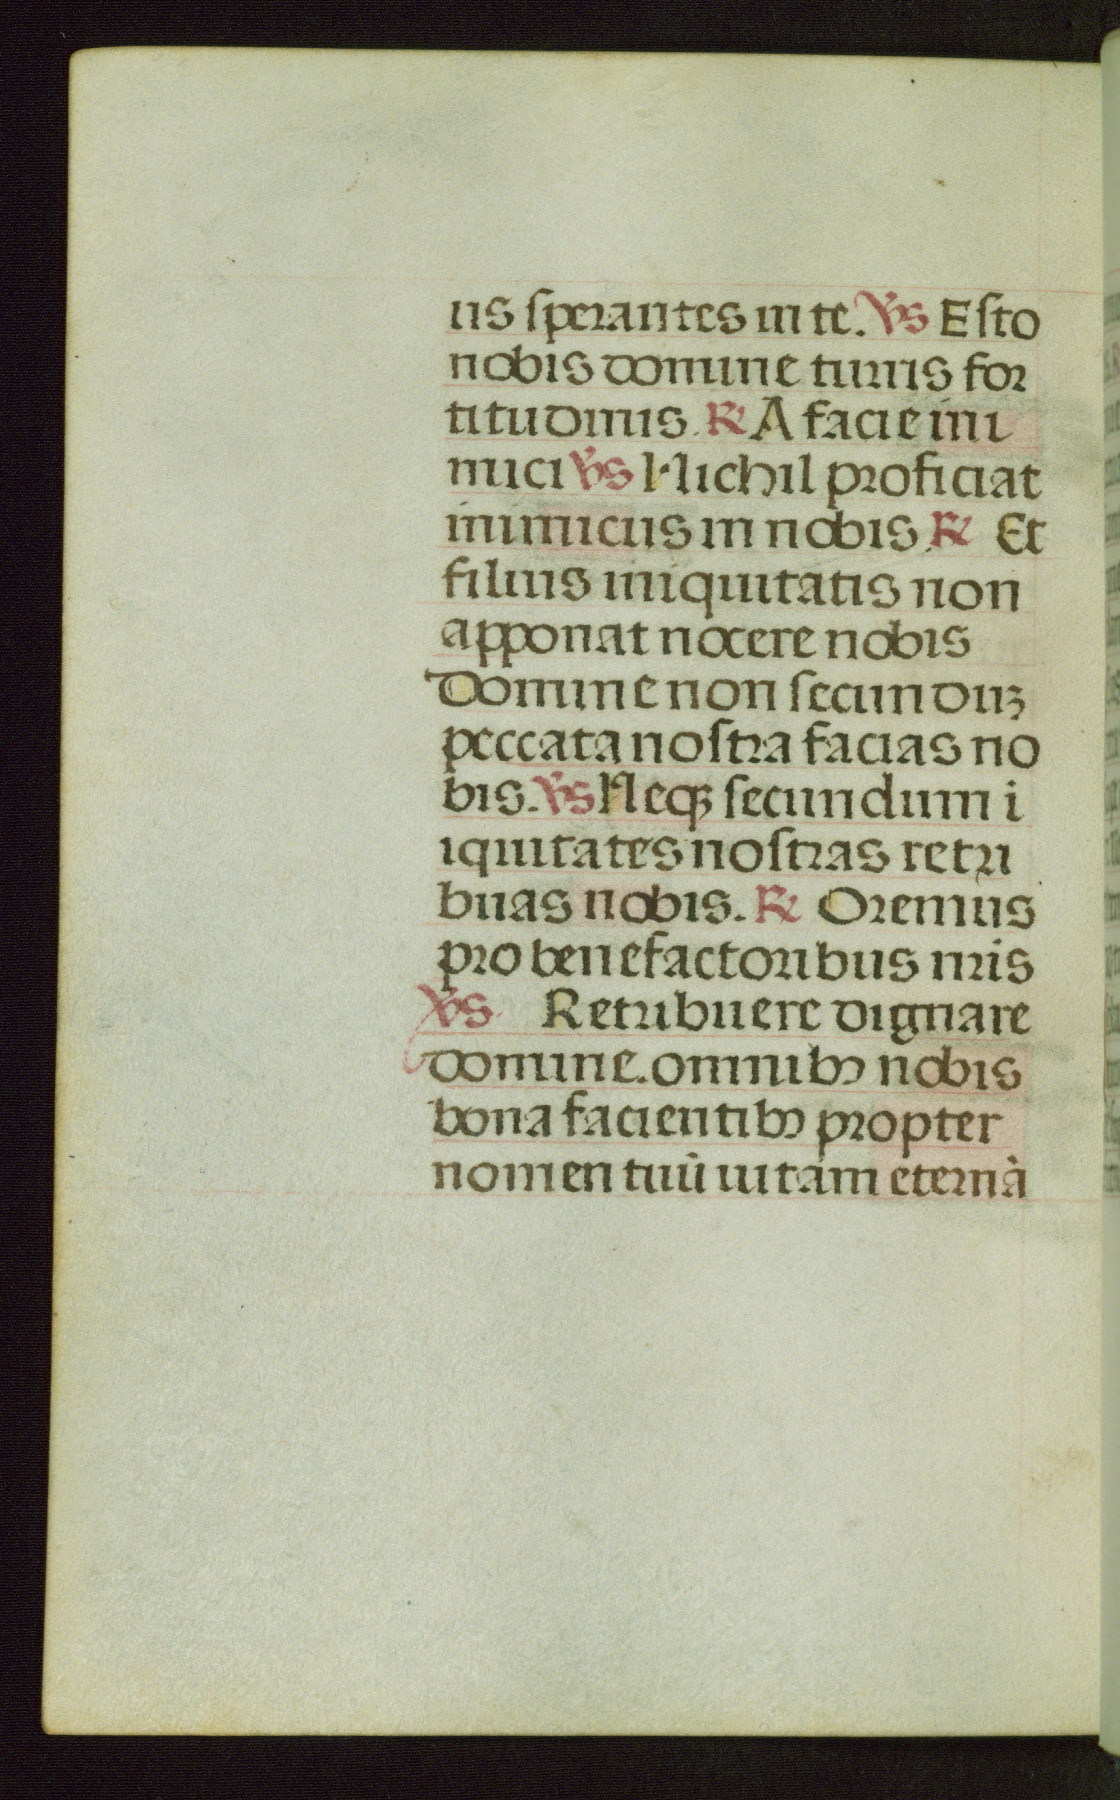 us sperantes in te. Vs Esto
nobis domine turris for
titudinis. R A facie ini
mici Vs Nichil proficiat
inimicus in nobis. R Et
filius iniquitatis non
apponat nocere nobis
Domine non secunduꝫ
peccata nostra facias no
bis. Vs Neqꝫ secundum i
iquitates nostras retri
buas nobis. R Oremus
pro benefactoribus nris
Vs Retribuere dignare
domine. omnibꝰ nobis
bona facientibꝰ propter
nomen tuū uitam eternā